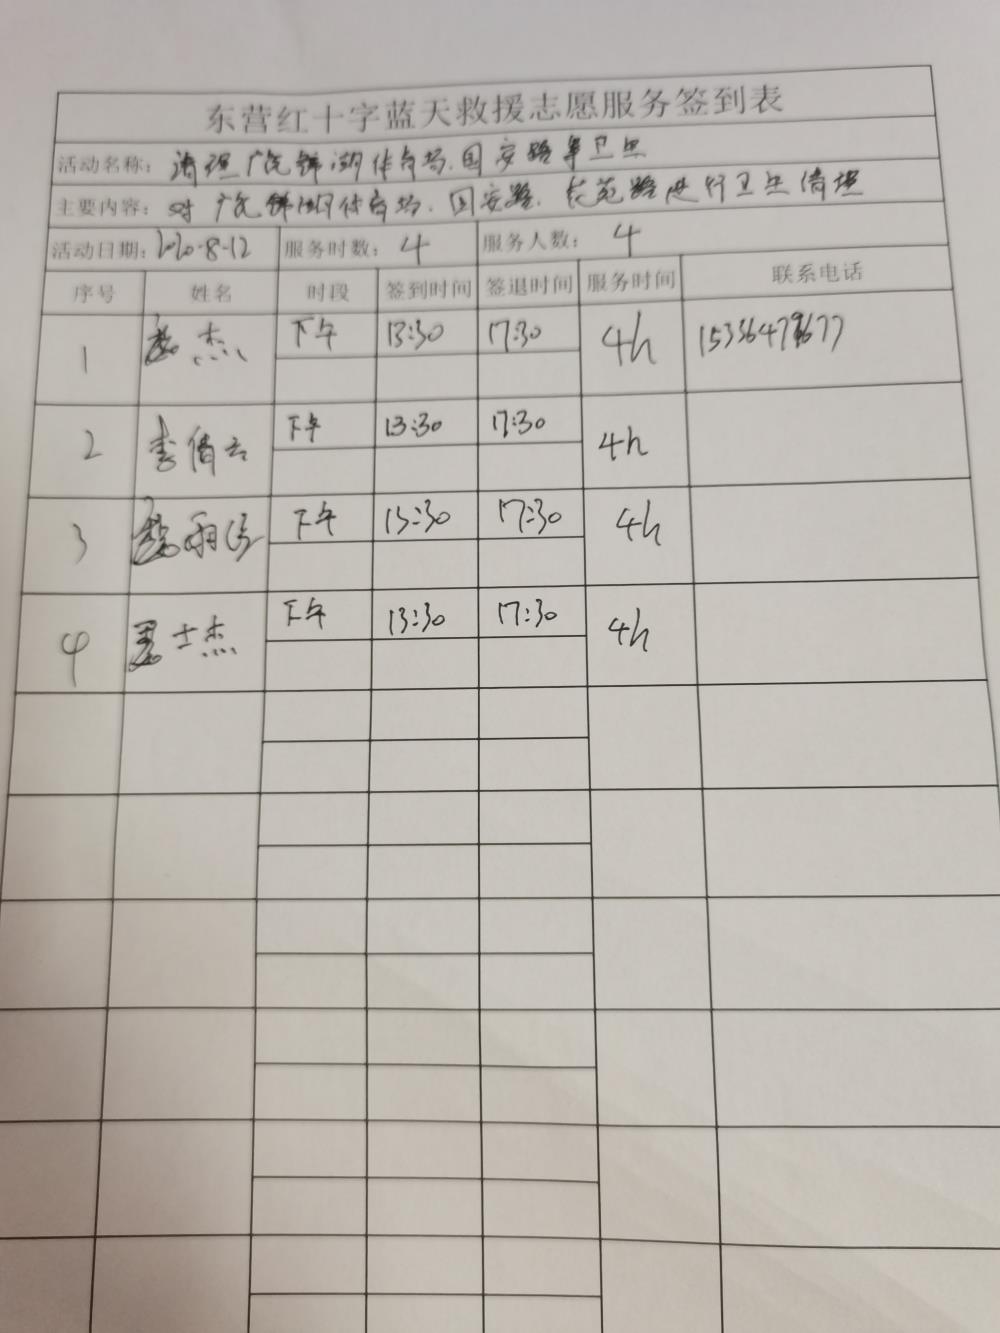 东营红十字蓝天救援志愿服务签到表
活动名称：清理广饶锦湖体育场.国安路等卫生
主要内容：对广饶锦湖体育场.国安路.长苑路进行卫生清理
活动日期：2020-8-12 服务时数：4 服务人数：4
序号 姓名 时段 签到时间 签退时间 服务时间 联系电话
1 杰 下午 13:30 17:30 4h
2 李倩云 下午 13:30 17:30 4h
3 下午 13:30 17:30 4h
4 士杰 下午 13:30 17:30 4h